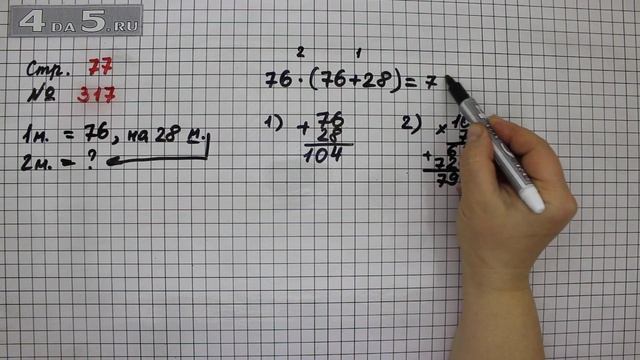 4DA5.RU
Стр. 77
№ 317
1м. = 76, на 28 м.
2м. = ?
2 1
76 · (76 + 28) = 7
1) + 76
28
104
2) × 10
7
+ 6
72
79